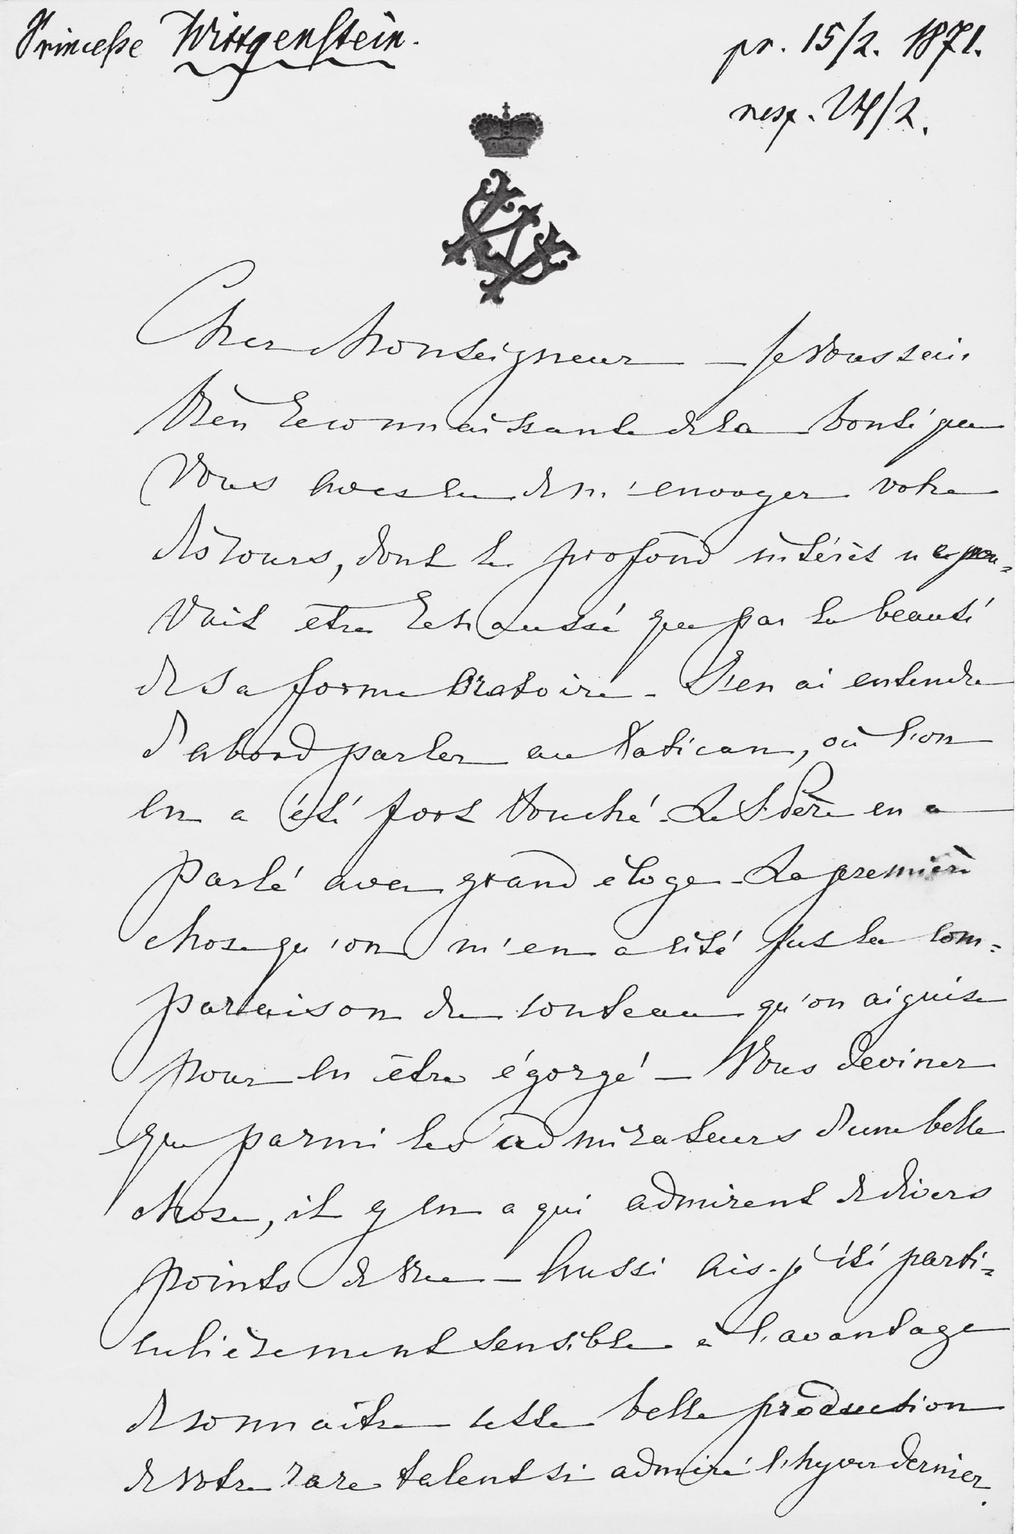 Princesse Wittgenstein.
pr. 15/2. 1871.
resp. 24/2.
Cher Monseigneur — Je vous suis
très reconnaissante de la bonté que
vous avez eu de m'envoyer votre
discours, dont le profond intérêt ne pou=
vait être rehaussé que par la beauté
de sa forme oratoire. J'en ai entendu
d'abord parler au Vatican, où l'on
en a été fort touché. Le St. Père en a
parlé avec grand éloge. La première
chose qu'on m'en a cité fut la com=
paraison du couteau qu'on aiguise
pour en être égorgé — Vous devinez
que parmi les admirateurs d'une belle
chose, il y en a qui admirent de divers
points de vue — Aussi ais-j'été parti=
culièrement sensible à l'avantage
de connaître cette belle production
de votre rare talent si admiré l'hyver dernier.